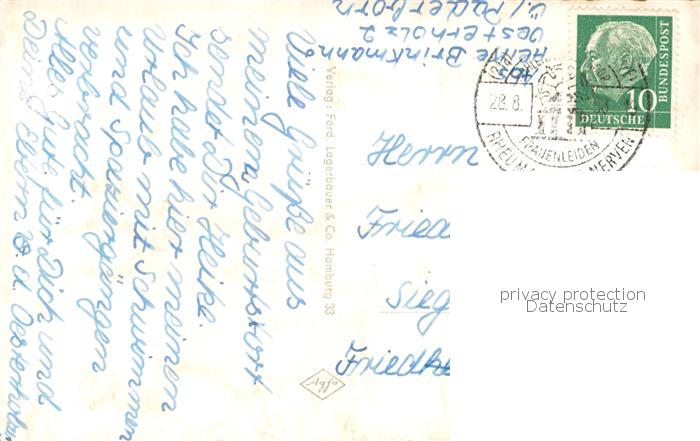 Viele Grüße aus
meinem Geburtsort
sendet Dir Heike.
Ich habe hier meinen
Urlaub mit Schwimmen
und Spaziergängen
verbracht.
Alles Gute für Dich und
Deine Eltern
Verlag: Ferd. Lagerbauer & Co. Hamburg 33
Heike Brinkmann
Oesterholz 2
ü./Paderborn
10
DEUTSCHE
BUNDESPOST
28.8.
FRAUENLEIDEN
RHEUMA
NERVEN
Herrn
Fried
Sieg
Friedh
Agfa
privacy protection
Datenschutz